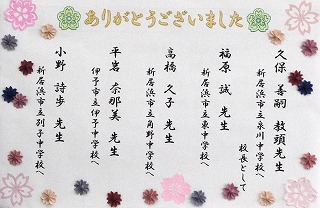 ありがとうございました
久保 善嗣 教頭先生
新居浜市立泉川中学校へ
福原 誠 先生
新居浜市立東中学校へ
校長として
高橋 久子 先生
新居浜市立角野中学校へ
平岩 奈那美 先生
伊予市立伊予中学校へ
小野 詩歩 先生
新居浜市立別子中学校へ